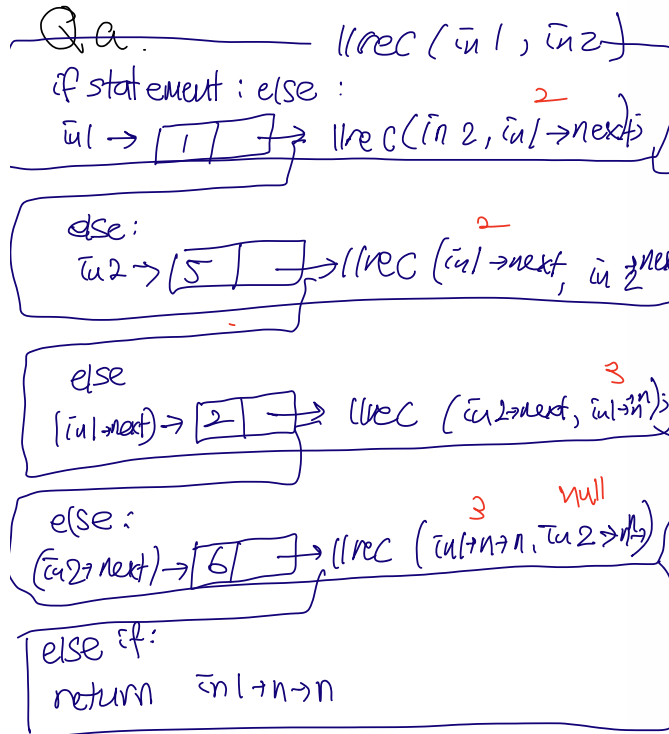 Qa.
llrec (in1, in2)
if statement : else :
2
in1 → 1 → llrec (in2, in1→next);
else:
2
in2 → 5 → llrec (in1→next, in2→nex
else
3
(in1→next) → 2 → llrec (in2→next, in1→n→n);
else:
3 null
(in2→next) → 6 → llrec (in1→n→n, in2→n→n)
else if:
return in1→n→n